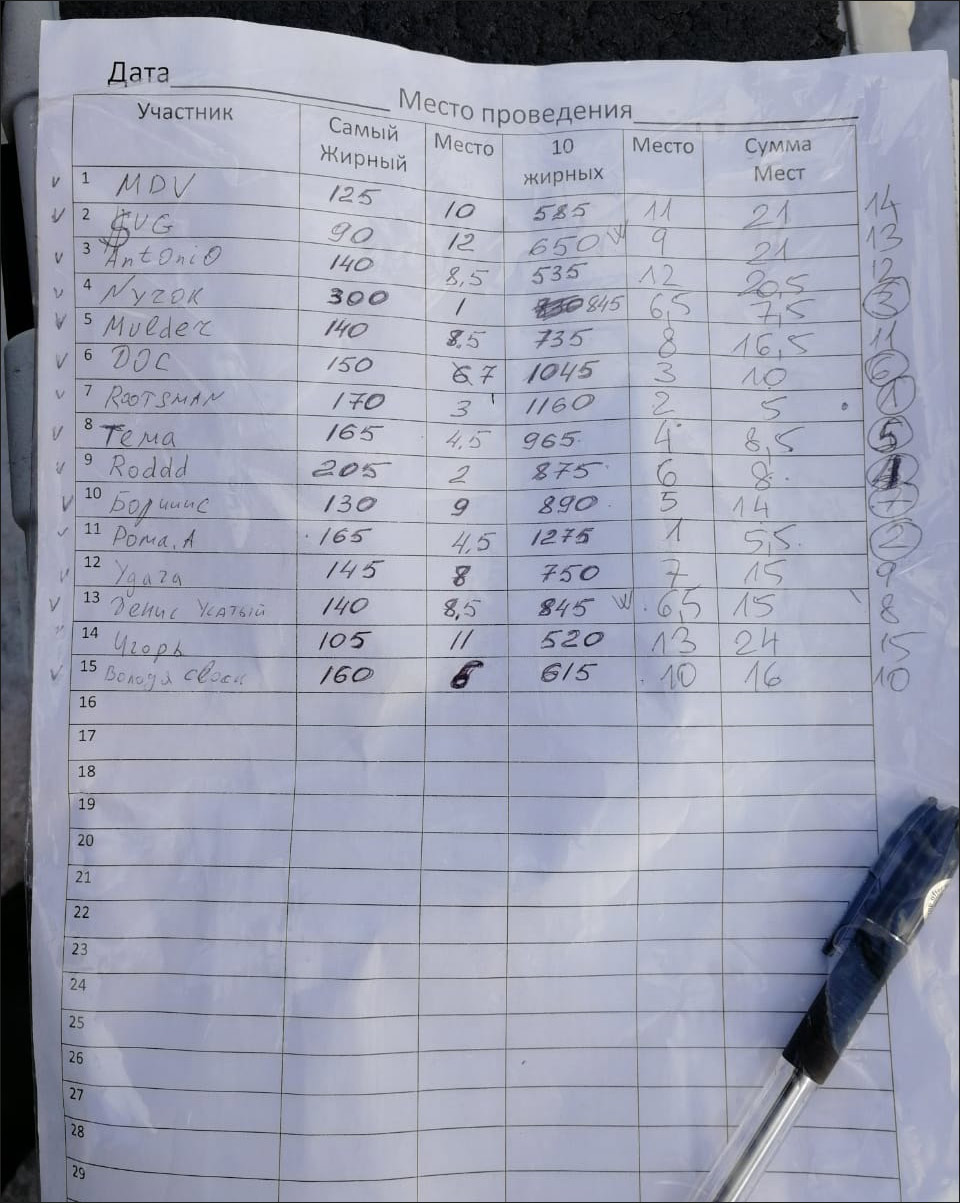 Дата
Место проведения
Участник Самый Жирный Место 10 жирных Место Сумма Мест
1 MDV 125 10 585 11 21 14
2 SVG 90 12 650 9 21 13
3 AntOniO 140 8,5 535 12 20,5 12
4 Nyrok 300 1 845 6,5 7,5 3
5 Mulder 140 8,5 735 8 16,5 11
6 DOC 150 7 1045 3 10 6
7 ROOTSMAN 170 3 1160 2 5 1
8 Тема 165 4,5 965 4 8,5 5
9 Roddd 205 2 875 6 8
10 130 9 890 5 14 7
11 Рома.А 165 4,5 1275 1 5,5 2
12 Удача 145 8 750 7 15 9
13 Денис Усатый 140 8,5 845 6,5 15 8
14 Игорь 105 11 520 13 24 15
15 Володя 160 6 615 10 16 10
16
17
18
19
20
21
22
23
24
25
26
27
28
29